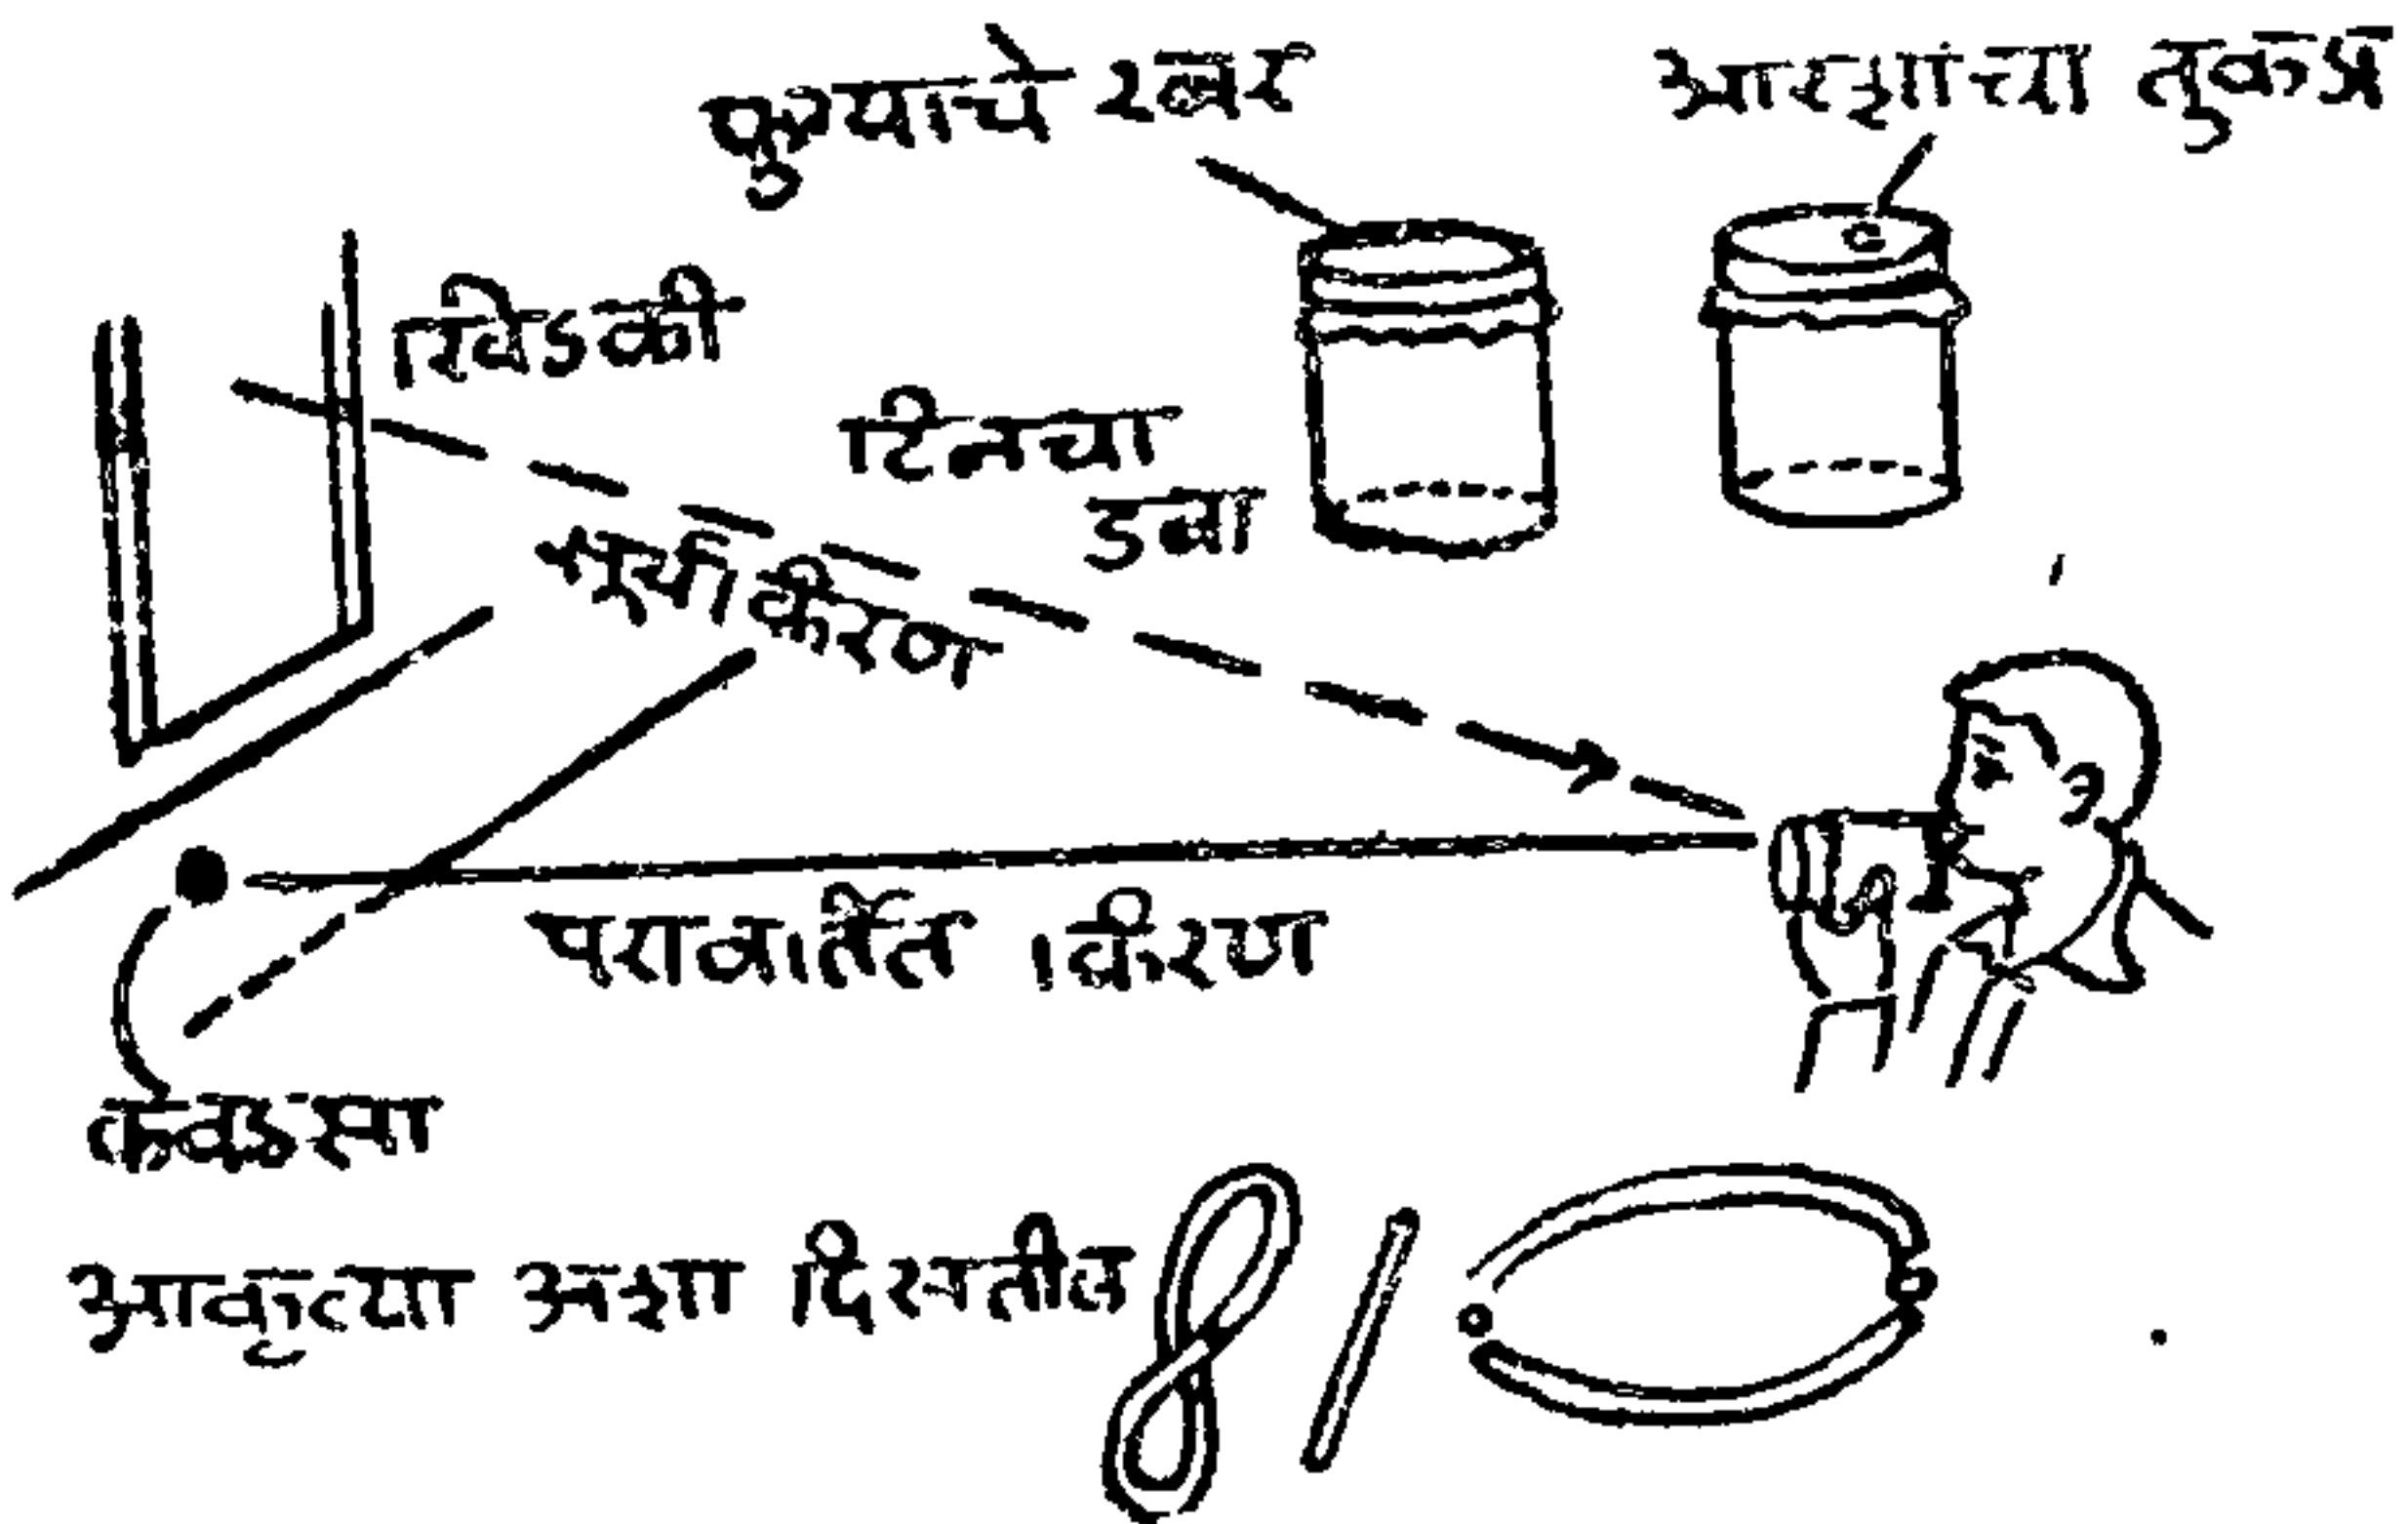 फुग्याचे रबर
आरशाचा तुकडा
खिडकी
टिनचा
डबा
सूर्य किरण
परावर्तित किरण
कवडसा
आकृत्या अशा दिसतील